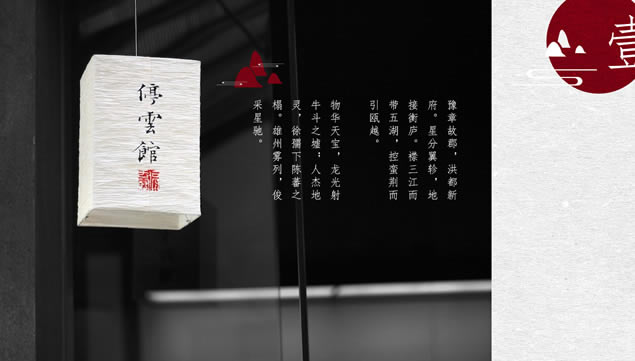 壹
豫章故郡，洪都新
府。星分翼轸，地
接衡庐。襟三江而
带五湖，控蛮荆而
引瓯越。
物华天宝，龙光射
牛斗之墟；人杰地
灵，徐孺下陈蕃之
榻。雄州雾列，俊
采星驰。
停雲館